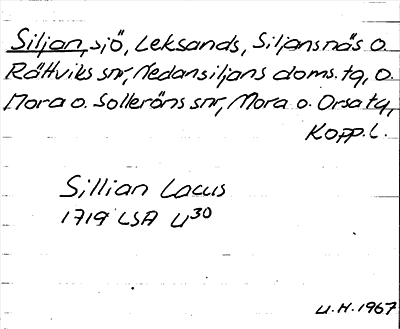 Siljan, sjö, Leksands, Siljansnäs o.
Rättviks snr, Nedansiljans doms. tg, o.
Mora o. Solleröns snr, Mora o. Orsa tg,
Kopp. l.
Sillian Lacus
1719 LSA U30
U.H. 1967